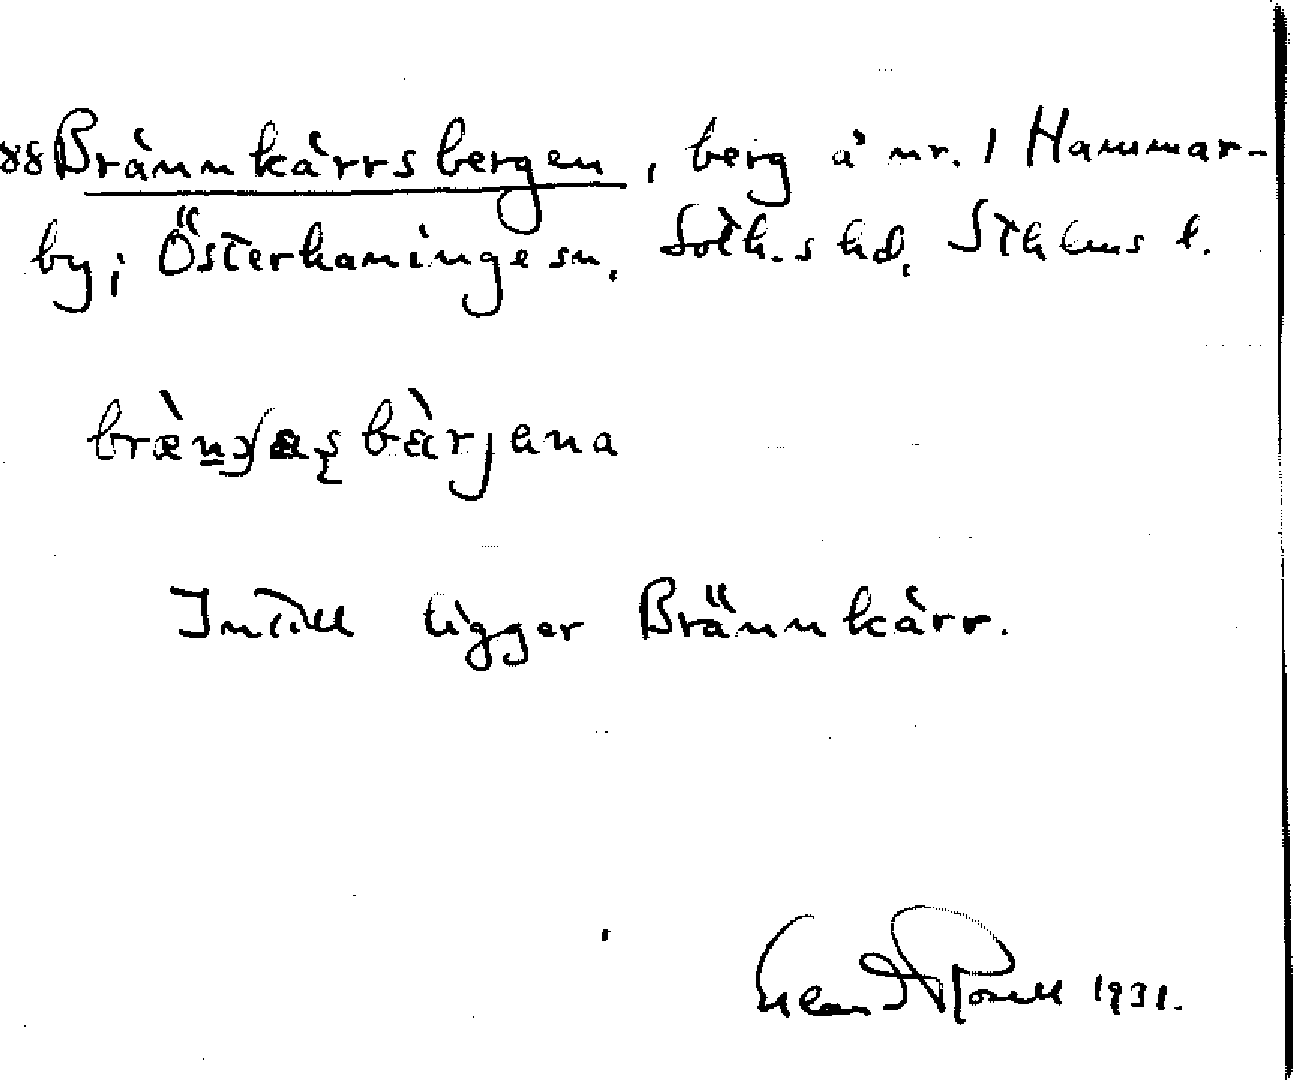 88 Brännkärrsbergen, berg å nr. 1 Hammar-
by; Österhaninge sn. Soth.s hd. Sthlms l.
bræ̀n
bæ̀rjana
Intill ligger Brännkärr.
1931.